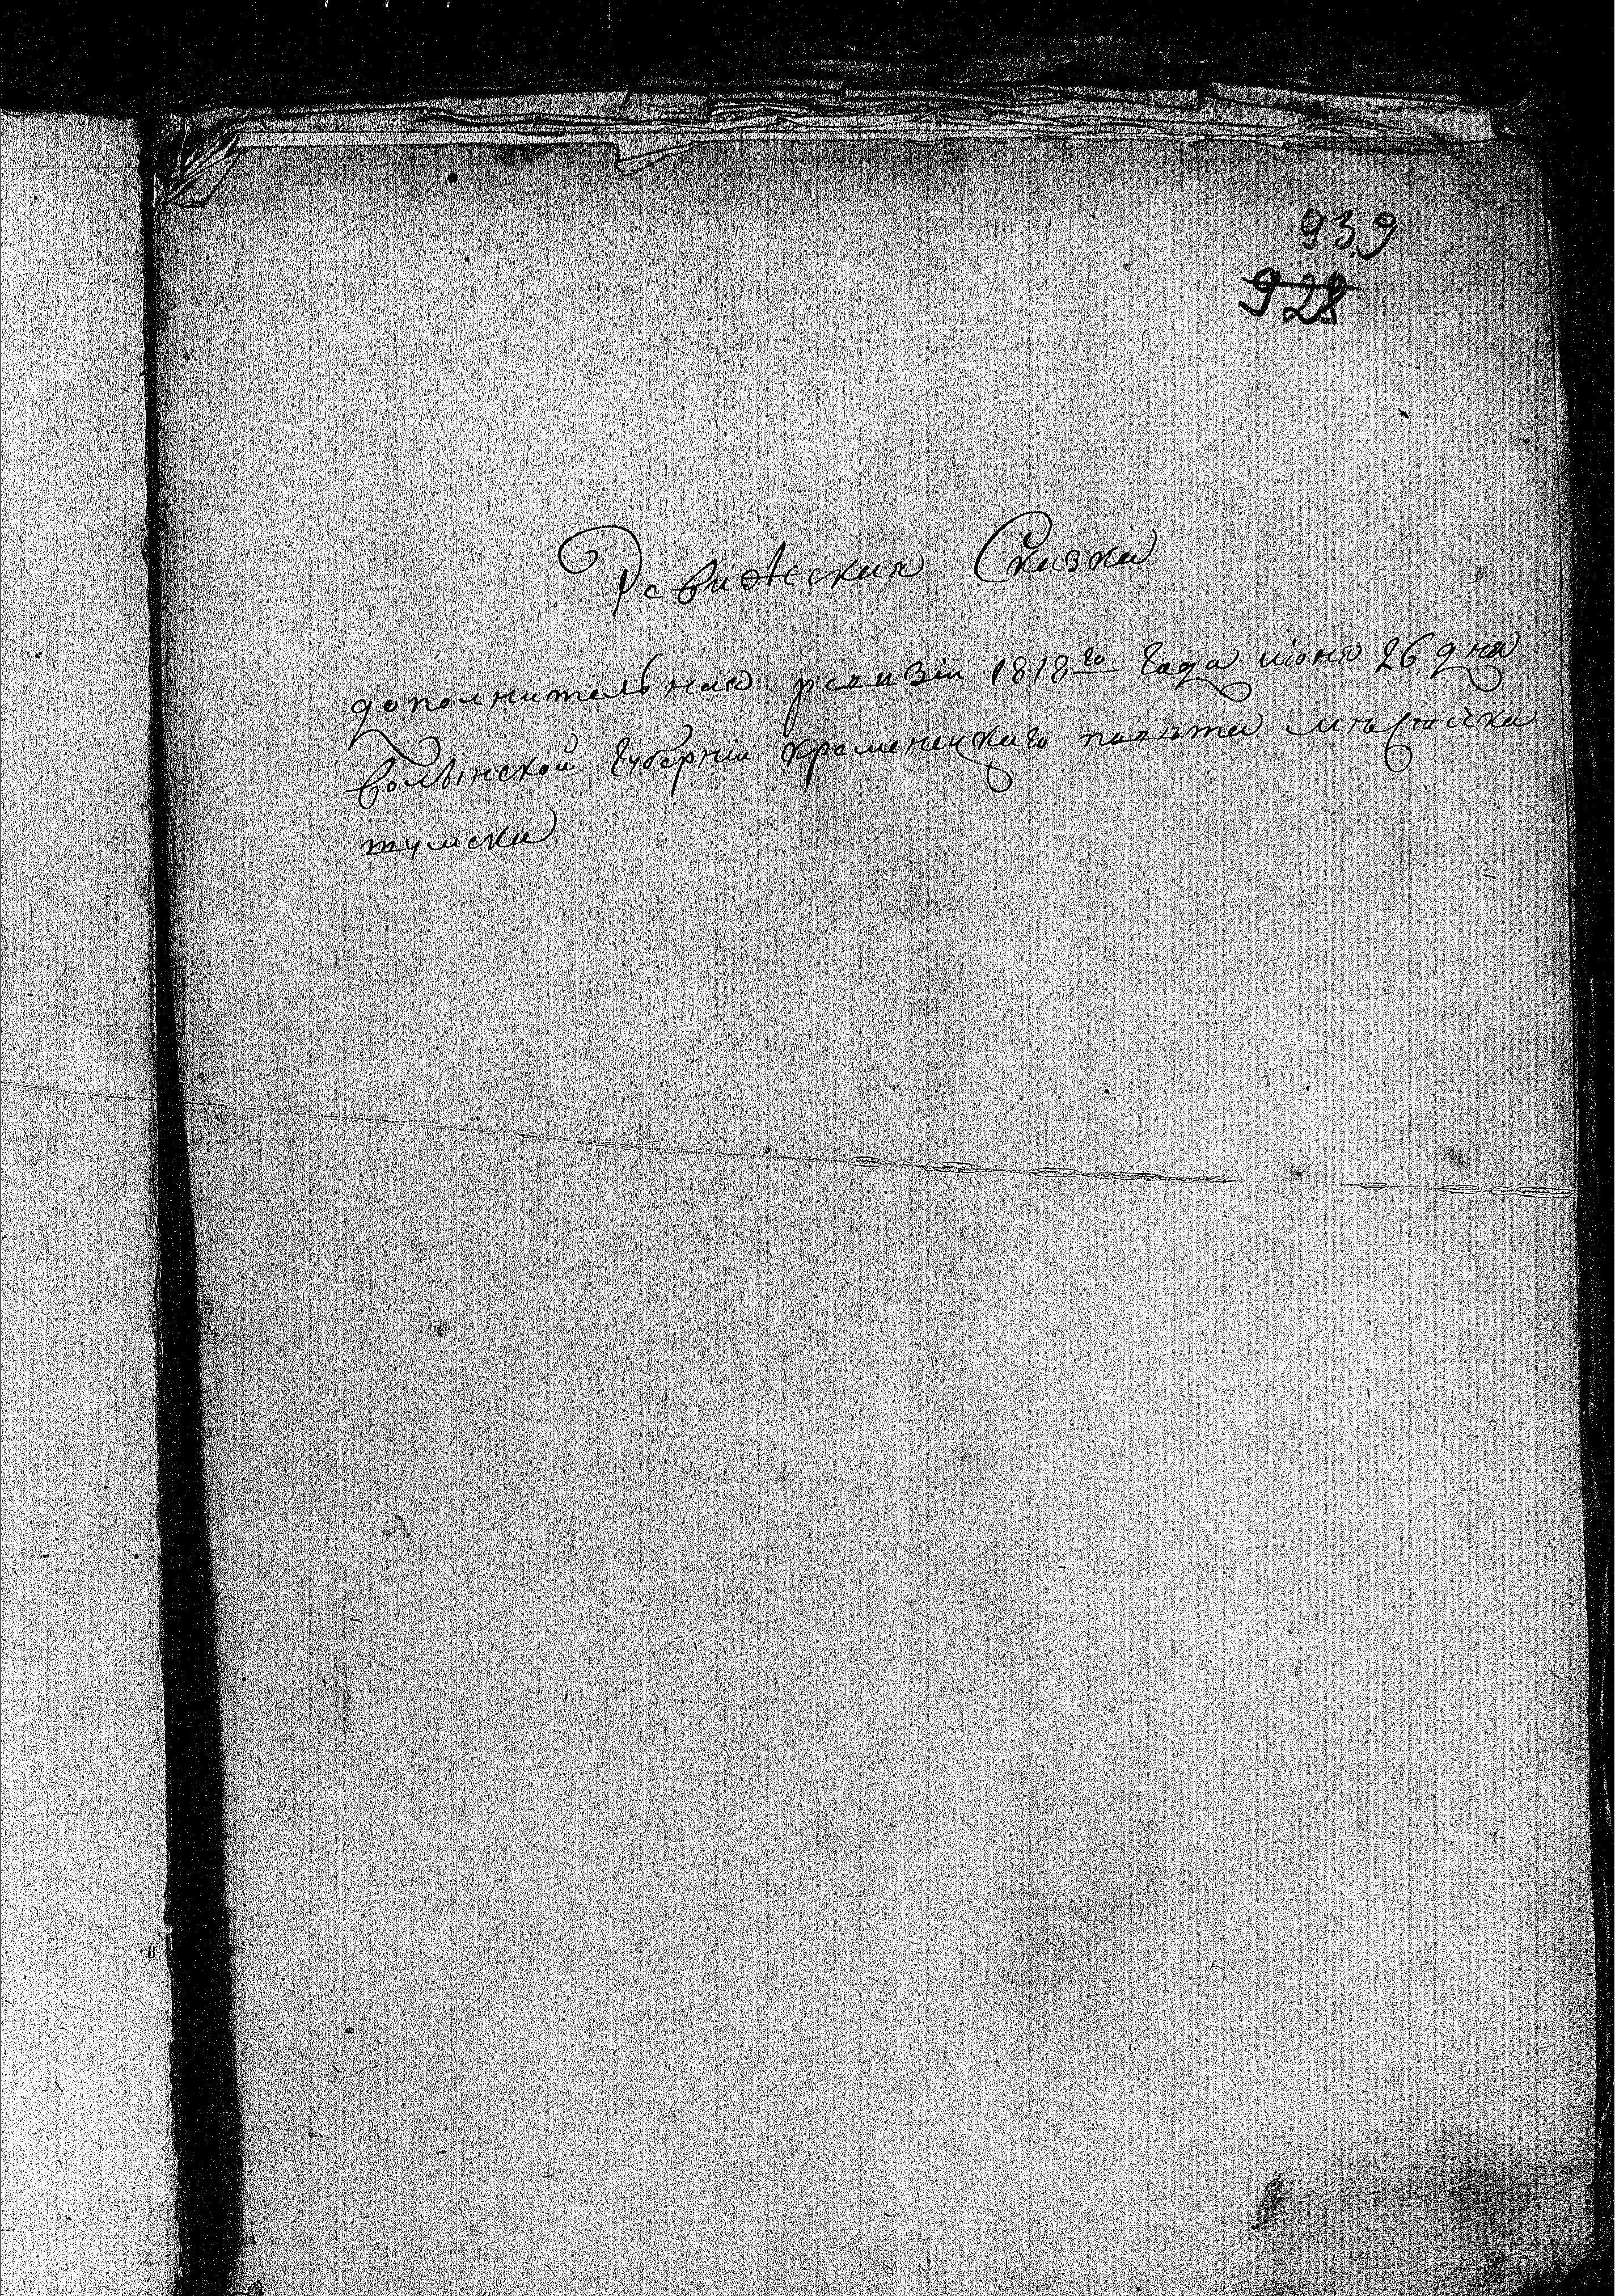 939
928
Ревижская Сказка
дополнительная ревизіи 1818го Года июня 26 дня
волынской Губерніи кременецкаго повѣта мѣстечка